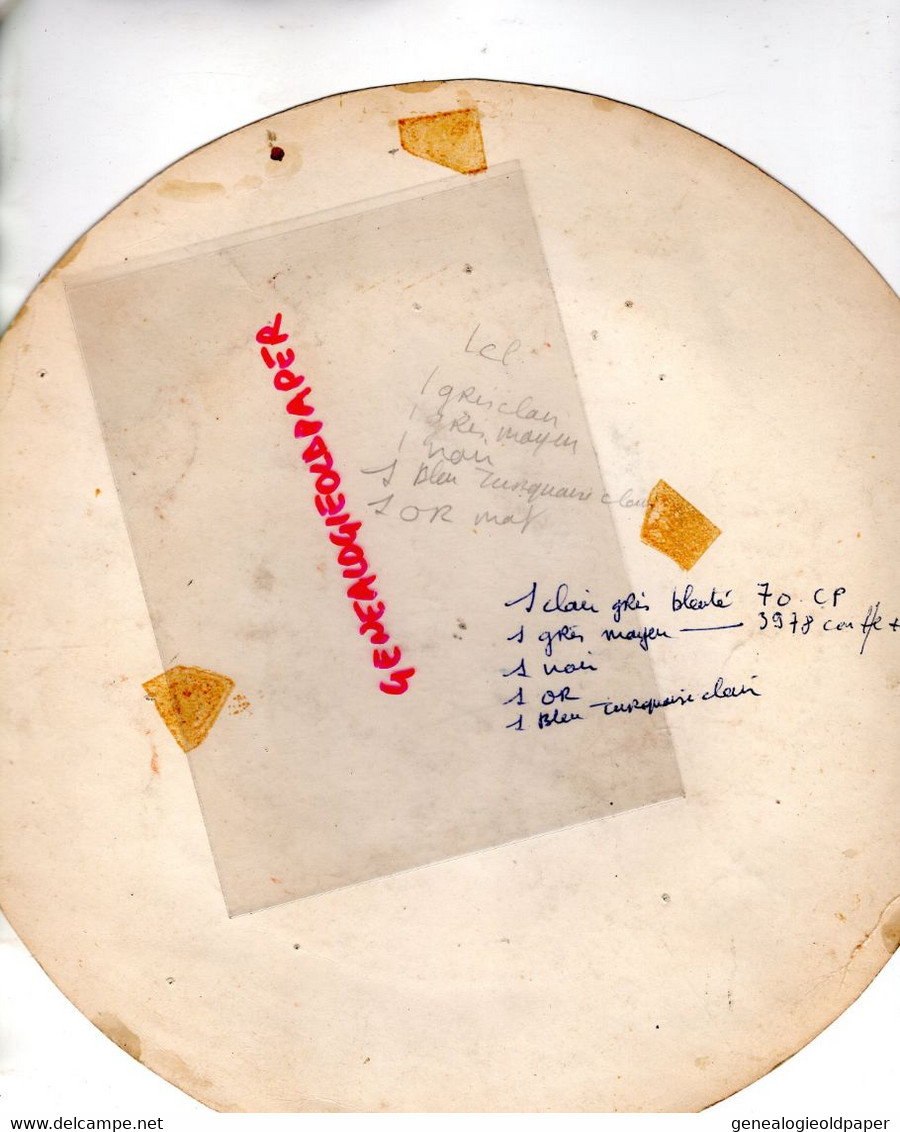 GENEALOGIEOLDPAPER
1 cl
1 gris clair
1 gris moyen
1 noir
1 Bleu Turquoise clair
1 OR mat
1 clair gris bleuté 70. CP
1 gris moyen — 3978
1 noir
1 OR
1 Bleu Turquoise clair
DELCAMPE.NET
genealogieoldpaper